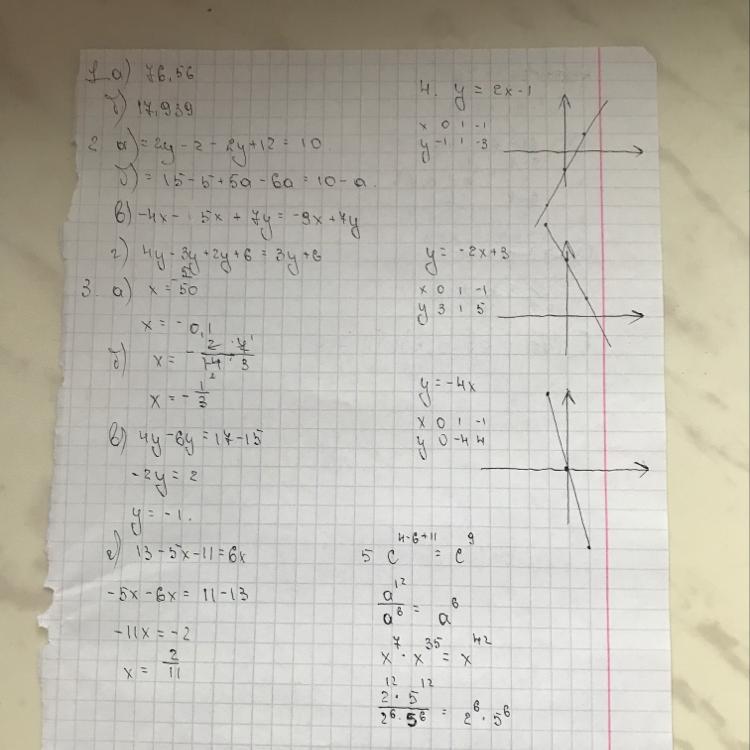 1 а) 76,56
б) 17,939
2 а) = 2y - 2 - 2y + 12 = 10
б) = 15 - 5 + 5a - 6a = 10 - a.
в) -4x - 5x + 7y = -9x + 7y
г) 4y - 3y + 2y + 6 = 3y + 6
3. а) x = 50
x = -0,1
б) x = - 2 · 7 / 14 · 3
x = - 1/3
в) 4y - 6y = 17 - 15
-2y = 2
y = -1.
г) 13 - 5x - 11 = 6x
-5x - 6x = 11 - 13
-11x = -2
x = 2/11
4. y = 2x - 1
x 0 1 -1
y -1 1 -3
y = -2x + 3
x 0 1 -1
y 3 1 5
y = -4x
x 0 1 -1
y 0 -4 4
5 c^4-6+11 = c^9
a^12/a^6 = a^6
x^7 · x^35 = x^42
2^12 · 5^12 / 2^6 · 5^6 = 2^6 · 5^6